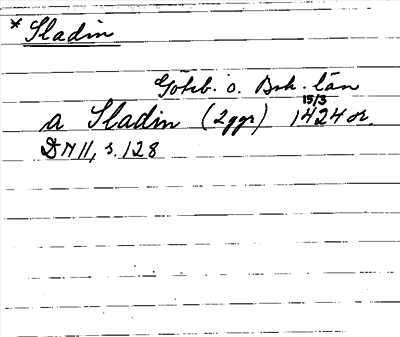 * Sladin
Göteb. o. Boh. län
15/3
a Sladin (2ggr) 1424 or.
DN II, s. 128